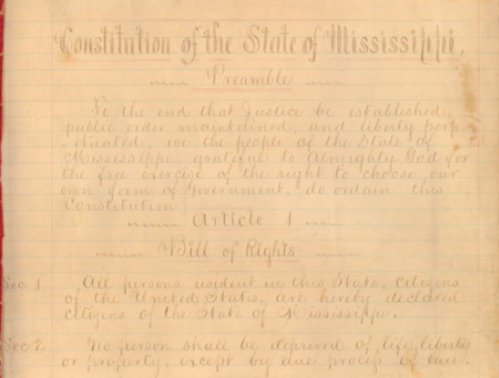 Constitution of the State of Mississippi.
Preamble
To the end that Justice be established,
public order maintained, and liberty perp
-etuated, we the people of the State of
Mississippi, grateful to Almighty God for
the free exercise of the right to choose our
own form of Government, do ordain this
Constitution
Article 1
Bill of Rights
Sec 1 All persons resident in this State, citizens
of the United States, are hereby declared
citizens of the State of Mississippi.
Sec 2 No person shall be deprived of life, liberty
or property, except by due process of law.